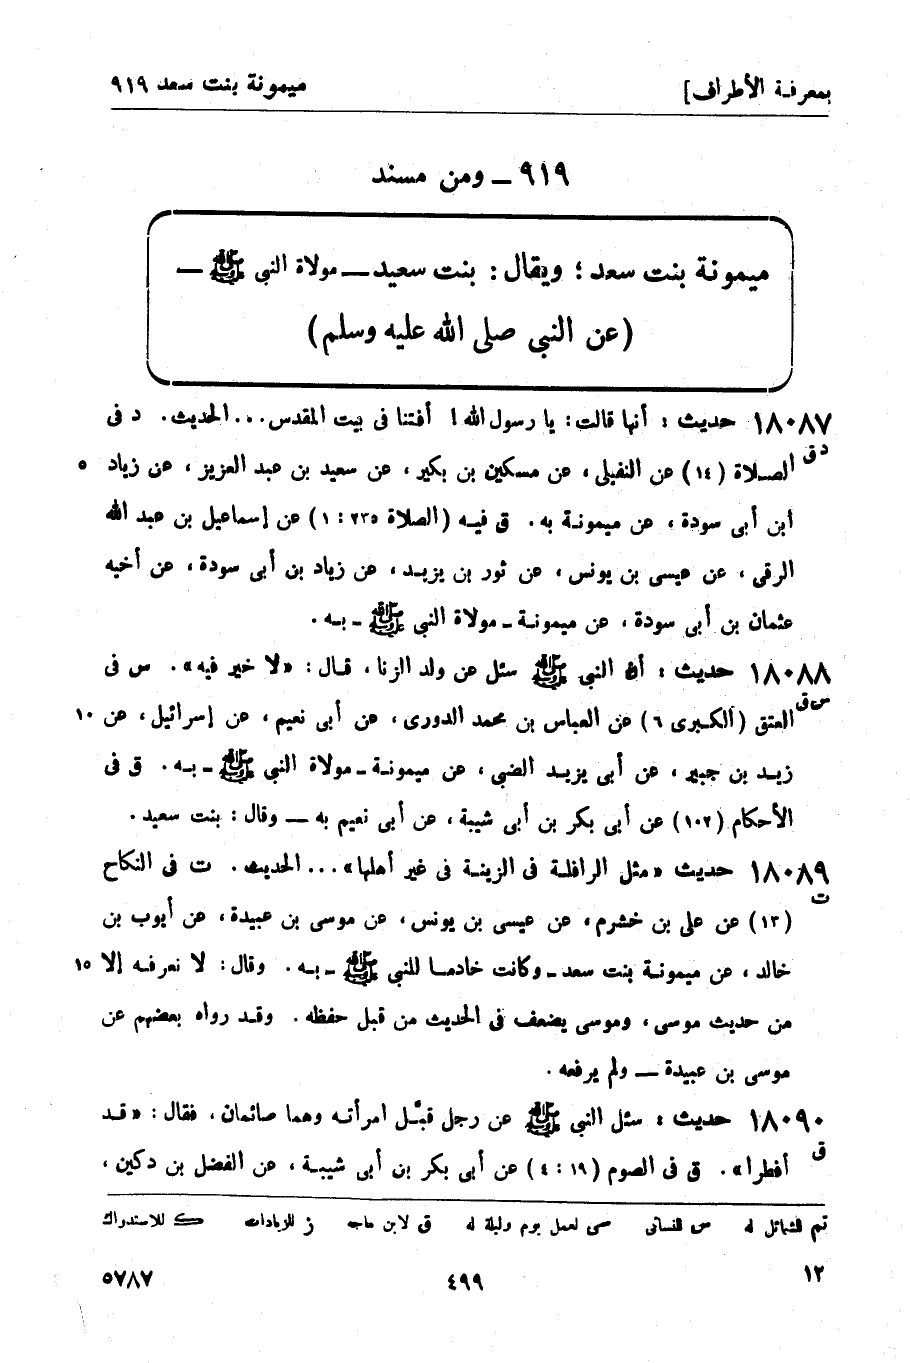 بمعرفة الأطراف] ميمونة بنت سعد ٩١٩
٩١٩ ــ ومن مسند
ميمونة بنت سعد ؛ ويقال : بنت سعيد ــ مولاة النبي ﷺ ــ
(عن النبي صلى الله عليه وسلم)
١٨٠٨٧ حديث : أنها قالت : يا رسول الله ! أفتنا فى بيت المقدس . . . الحديث . د فى
د ق
الصلاة (١٤) عن النفيلى ، عن مسكين بن بكير ، عن سعيد بن عبد العزيز ، عن زياد ٥
ابن أبى سودة ، عن ميمونة به . ق فيه (الصلاة ٢٣٥ : ١) عن إسماعيل بن عبد الله
الرقى ، عن عيسى بن يونس ، عن ثور بن يزيد ، عن زياد بن أبى سودة ، عن أخيه
عثمان بن أبى سودة ، عن ميمونة ـ مولاة النبي ﷺ ـ به .
١٨٠٨٨ حديث : أن النبي ﷺ سئل عن ولد الزنا ، قال : «لا خير فيه» . س فى
س ق
العتق (الكبرى ٦) عن العباس بن محمد الدورى ، عن أبى نعيم ، عن إسرائيل ، عن ١٠
زيد بن جبير ، عن أبى يزيد الضبى ، عن ميمونة ـ مولاة النبي ﷺ ـ به . ق فى
الأحكام (١٠٢) عن أبى بكر بن أبى شيبة ، عن أبى نعيم به ــ وقال : بنت سعيد .
١٨٠٨٩ حديث «مثل الرافلة فى الزينة فى غير أهلها» . . . الحديث . ت فى النكاح
ت
(١٣) عن على بن خشرم ، عن عيسى بن يونس ، عن موسى بن عبيدة ، عن أيوب بن
خالد ، عن ميمونة بنت سعد ـ وكانت خادما للنبي ﷺ ـ به . وقال : لا نعرفه إلا ١٥
من حديث موسى ، وموسى يضعف فى الحديث من قبل حفظه . وقد رواه بعضهم عن
موسى بن عبيدة ــ ولم يرفعه .
١٨٠٩٠ حديث : سئل النبي ﷺ عن رجل قبّل امرأته وهما صائمان ، فقال : «قد
ق
أفطرا» . ق فى الصوم (١٩ : ٤) عن أبى بكر بن أبى شيبة ، عن الفضل بن دكين ،
تم للشمائل له س للنسائى سى لعمل يوم وليلة له ق لابن ماجه ز للزيادات ك للاستدراك
١٢ ٤٩٩ ٥٧٨٧